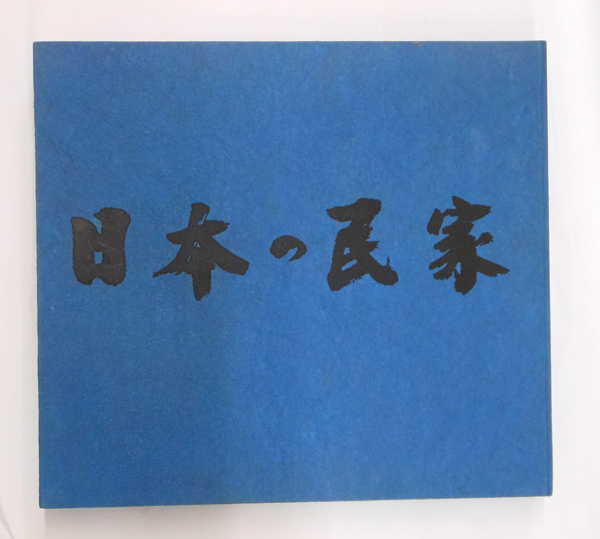 日本の民家